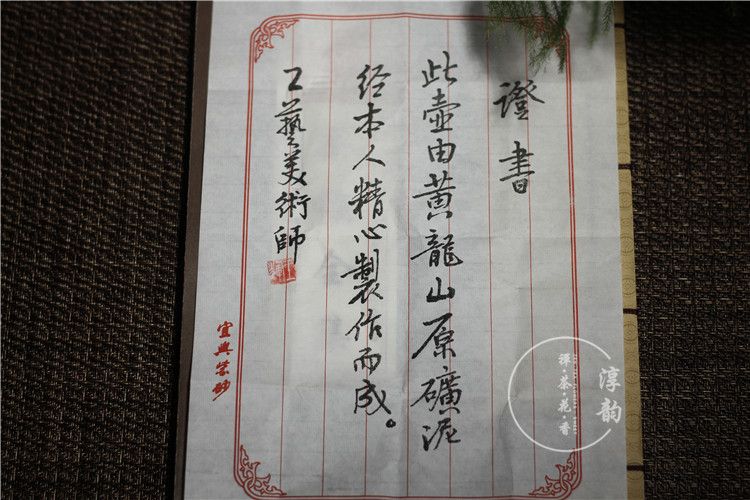 證書
此壺由黄龍山原礦泥
经本人精心製作而成。
工藝美術師
宜興紫砂
淳韵
禪·茶·花·香